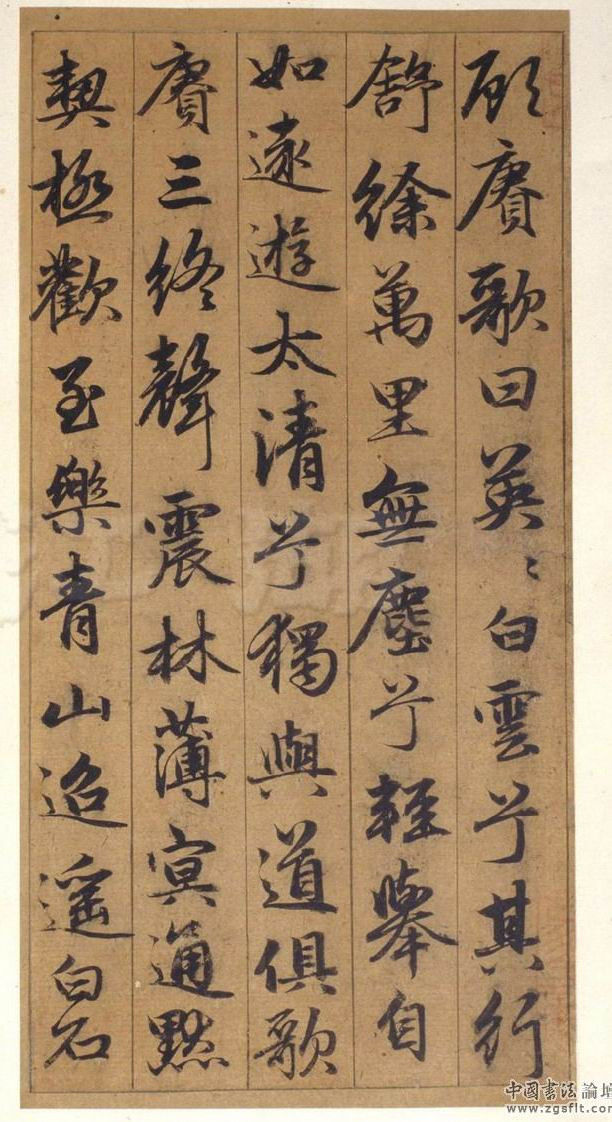 顧賡歌曰英〻白雲兮其行
舒徐萬里無塵兮輕舉自
如遠遊太清兮獨與道俱歌
賡三終聲震林薄冥通默
契極歡至樂青山迢遥白石
中國書法論壇
www.zgsflt.com